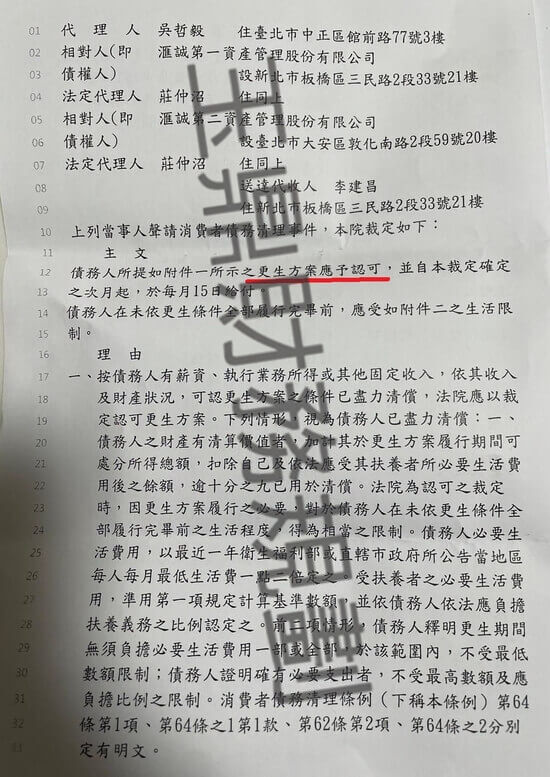 01 代理人 吳哲毅 住臺北市中正區館前路77號3樓
02 相對人(即 滙誠第一資產管理股份有限公司
03 債權人) 設新北市板橋區三民路2段33號21樓
04 法定代理人 莊仲沼 住同上
05 相對人(即 滙誠第二資產管理股份有限公司
06 債權人) 設臺北市大安區敦化南路2段59號20樓
07 法定代理人 莊仲沼 住同上
08 送達代收人 李建昌
09 住新北市板橋區三民路2段33號21樓
10 上列當事人聲請消費者債務清理事件，本院裁定如下：
11 主文
12 債務人所提如附件一所示之更生方案應予認可，並自本裁定確定
13 之次月起，於每月15日給付。
14 債務人在未依更生條件全部履行完畢前，應受如附件二之生活限
15 制。
16 理由
17 一、按債務人有薪資、執行業務所得或其他固定收入，依其收入
18 及財產狀況，可認更生方案之條件已盡力清償，法院應以裁
19 定認可更生方案。下列情形，視為債務人已盡力清償：一、
20 債務人之財產有清算價值者，加計其於更生方案履行期間可
21 處分所得總額，扣除自己及依法應受其扶養者所必要生活費
22 用後之餘額，逾十分之九已用於清償。法院為認可之裁定
23 時，因更生方案履行之必要，對於債務人在未依更生條件全
24 部履行完畢前之生活程度，得為相當之限制。債務人必要生
25 活費用，以最近一年衛生福利部或直轄市政府所公告當地區
26 每人每月最低生活費一點二倍定之。受扶養者之必要生活費
27 用，準用第一項規定計算基準數額，並依債務人依法應負擔
28 扶養義務之比例認定之。前二項情形，債務人釋明更生期間
29 無須負擔必要生活費用一部或全部，於該範圍內，不受最低
30 數額限制；債務人證明確有必要支出者，不受最高數額及應
31 負擔比例之限制。消費者債務清理條例（下稱本條例）第64
32 條第1項、第64條之1第1款、第62條第2項、第64條之2分別
33 定有明文。
玉鼎財務規劃